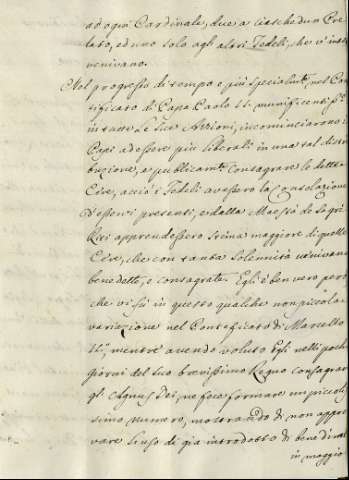 ad ogni Cardinale, due a ciaschedun Pre-
lato, ed uno solo agl'altri Fedeli, che v'inter-
venivano.
Nel progresso di tempo e più specialmte nel Pon-
tificato di Papa Paolo II. munificentismo
in tutte le sue Azzioni, incominciarono i
Papi ad essere più liberali in una tal distri-
buzione, e publicamte consagrare le dette
Cere, acciò i Fedeli avessero la Consolazione
d'esservi presenti, e dalla Maestà de sagri
Riti apprendessero stima maggiore di quelle
Cere, che con tanta solennità venivano
benedette, e consagrate. Egli è ben vero però
che vi fù in questo qualche non piccola
variazione nel Pontificato di Marcello
II., mentre avendo voluto Egli nelli pochi
giorni del suo brevissimo Regno consagrar
gl'Agnus Dei, ne fece formare un piccolis-
simo numero, mostrando di non appro-
vare l'uso di già introdotto di benedirne
in maggio